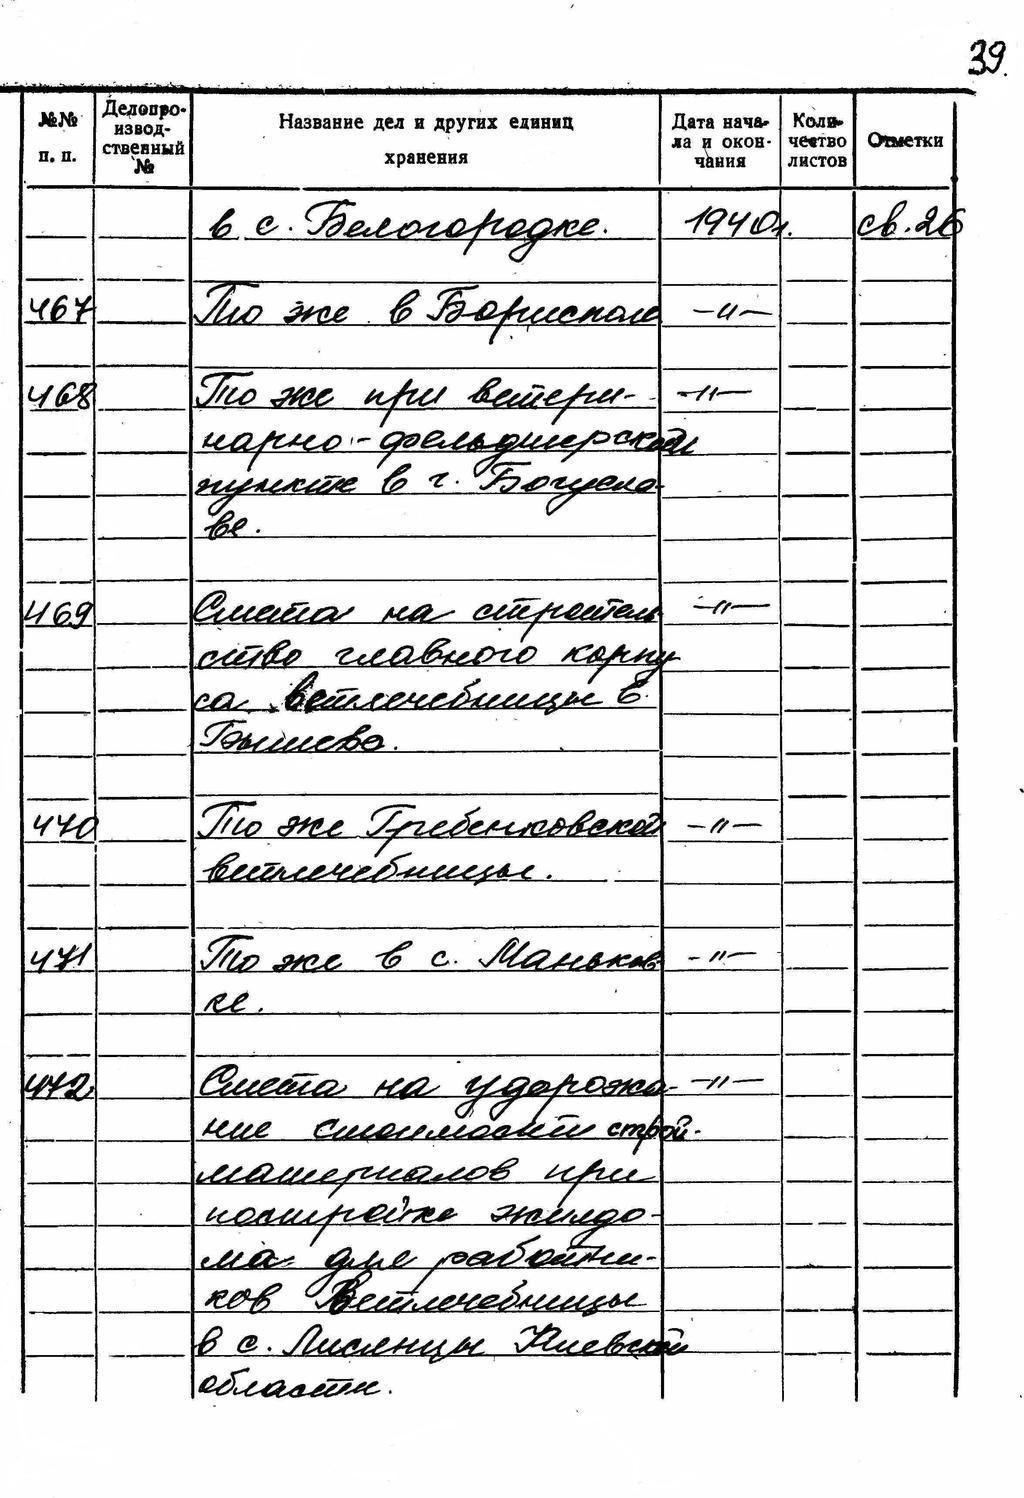 39.
№№ п. п. Делопро-извод-ственный № Название дел и других единиц хранения Дата нача-ла и окон-чания Коли-чество листов Отметки
в с. Белогородке. 1940г. св. 26
467 То же в Борисполе —〃—
468 То же при ветери- —〃—
нарно-фельдшерском
пункте в г. Богусла-
ве.
469 Смета на строитель —〃—
ство главного корпу
са ветлечебницы в
Бышево.
470 То же Гребенковской —〃—
ветлечебницы.
471 То же в с. Маньков- —〃—
ке.
472 Смета на удорожа- —〃—
ние стоимости строй-
материалов при
постройке жилдо-
ма для работни-
ков Ветлечебницы
в с. Лисянцы Киевской
области.